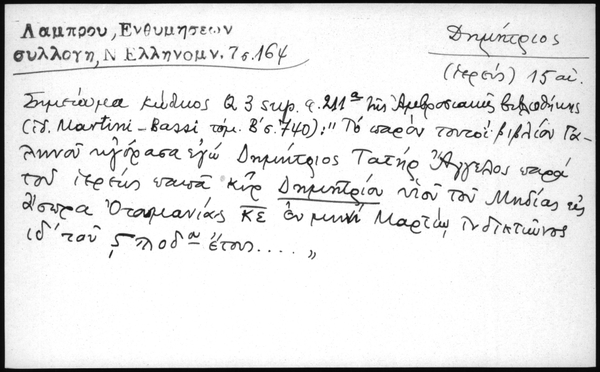 Λαμπρου, Ενθυμησεων
συλλογη, Ν Ελληνομν. 7 σ. 164
Δημήτριος
(ἱερεύς) 15 αἰ.
Σημείωμα κώδικος Q 3 sup. φ. 211α τῆς Ἀμβροσιανῆς βιβλιοθήκης
(ἰδ. Martini - Bassi τόμ. Β' σ. 740): "Τὸ παρὸν τουτοὶ βιβλίον Γα-
ληνοῦ ἠγόρασα ἐγὼ Δημήτριος Τατὴρ Ἄγγελος παρὰ
τοῦ ἱερέως παπᾶ κὺρ Δημητρίου υἱοῦ τοῦ Μηδίας εἰς
Ὀτομανίας ΚΕ ἐν μηνὶ Μαρτίῳ, ἰνδικτιῶνος
ιδ' τοῦ ϛ ἔτους .... "